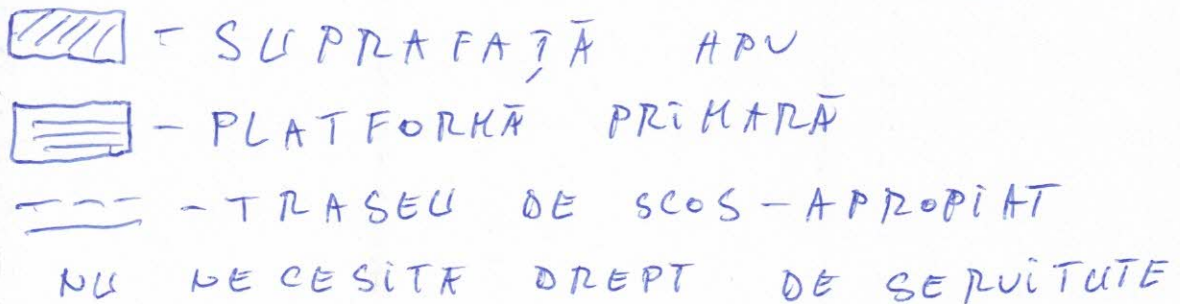 - SUPRAFAȚĂ APV
- PLATFORMĂ PRIMARĂ
- TRASEU DE SCOS-APROPIAT
NU NECESITĂ DREPT DE SERVITUTE